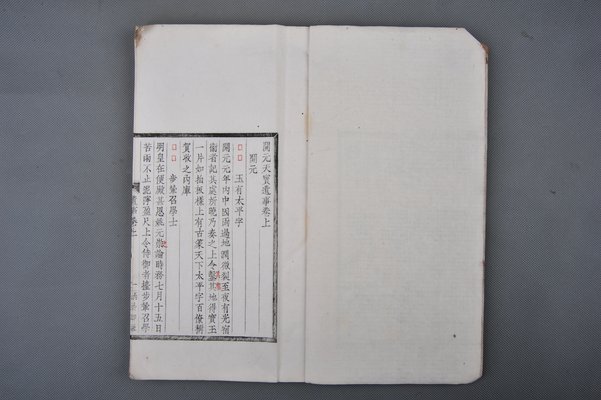 開元天寶遺事卷上
開元
玉有太平字
開元元年內中因雨過地潤微裂至夜有光宿
衛者記其處所曉乃奏之上令鑿其地得寶玉
一片如拍板樣上有古篆天下太平字百僚稱
賀收之內庫
步輦召學士
明皇在便殿甚思姚元崇論時務七月十五日
苦雨不止泥濘盈尺上令侍御者擡步輦召學